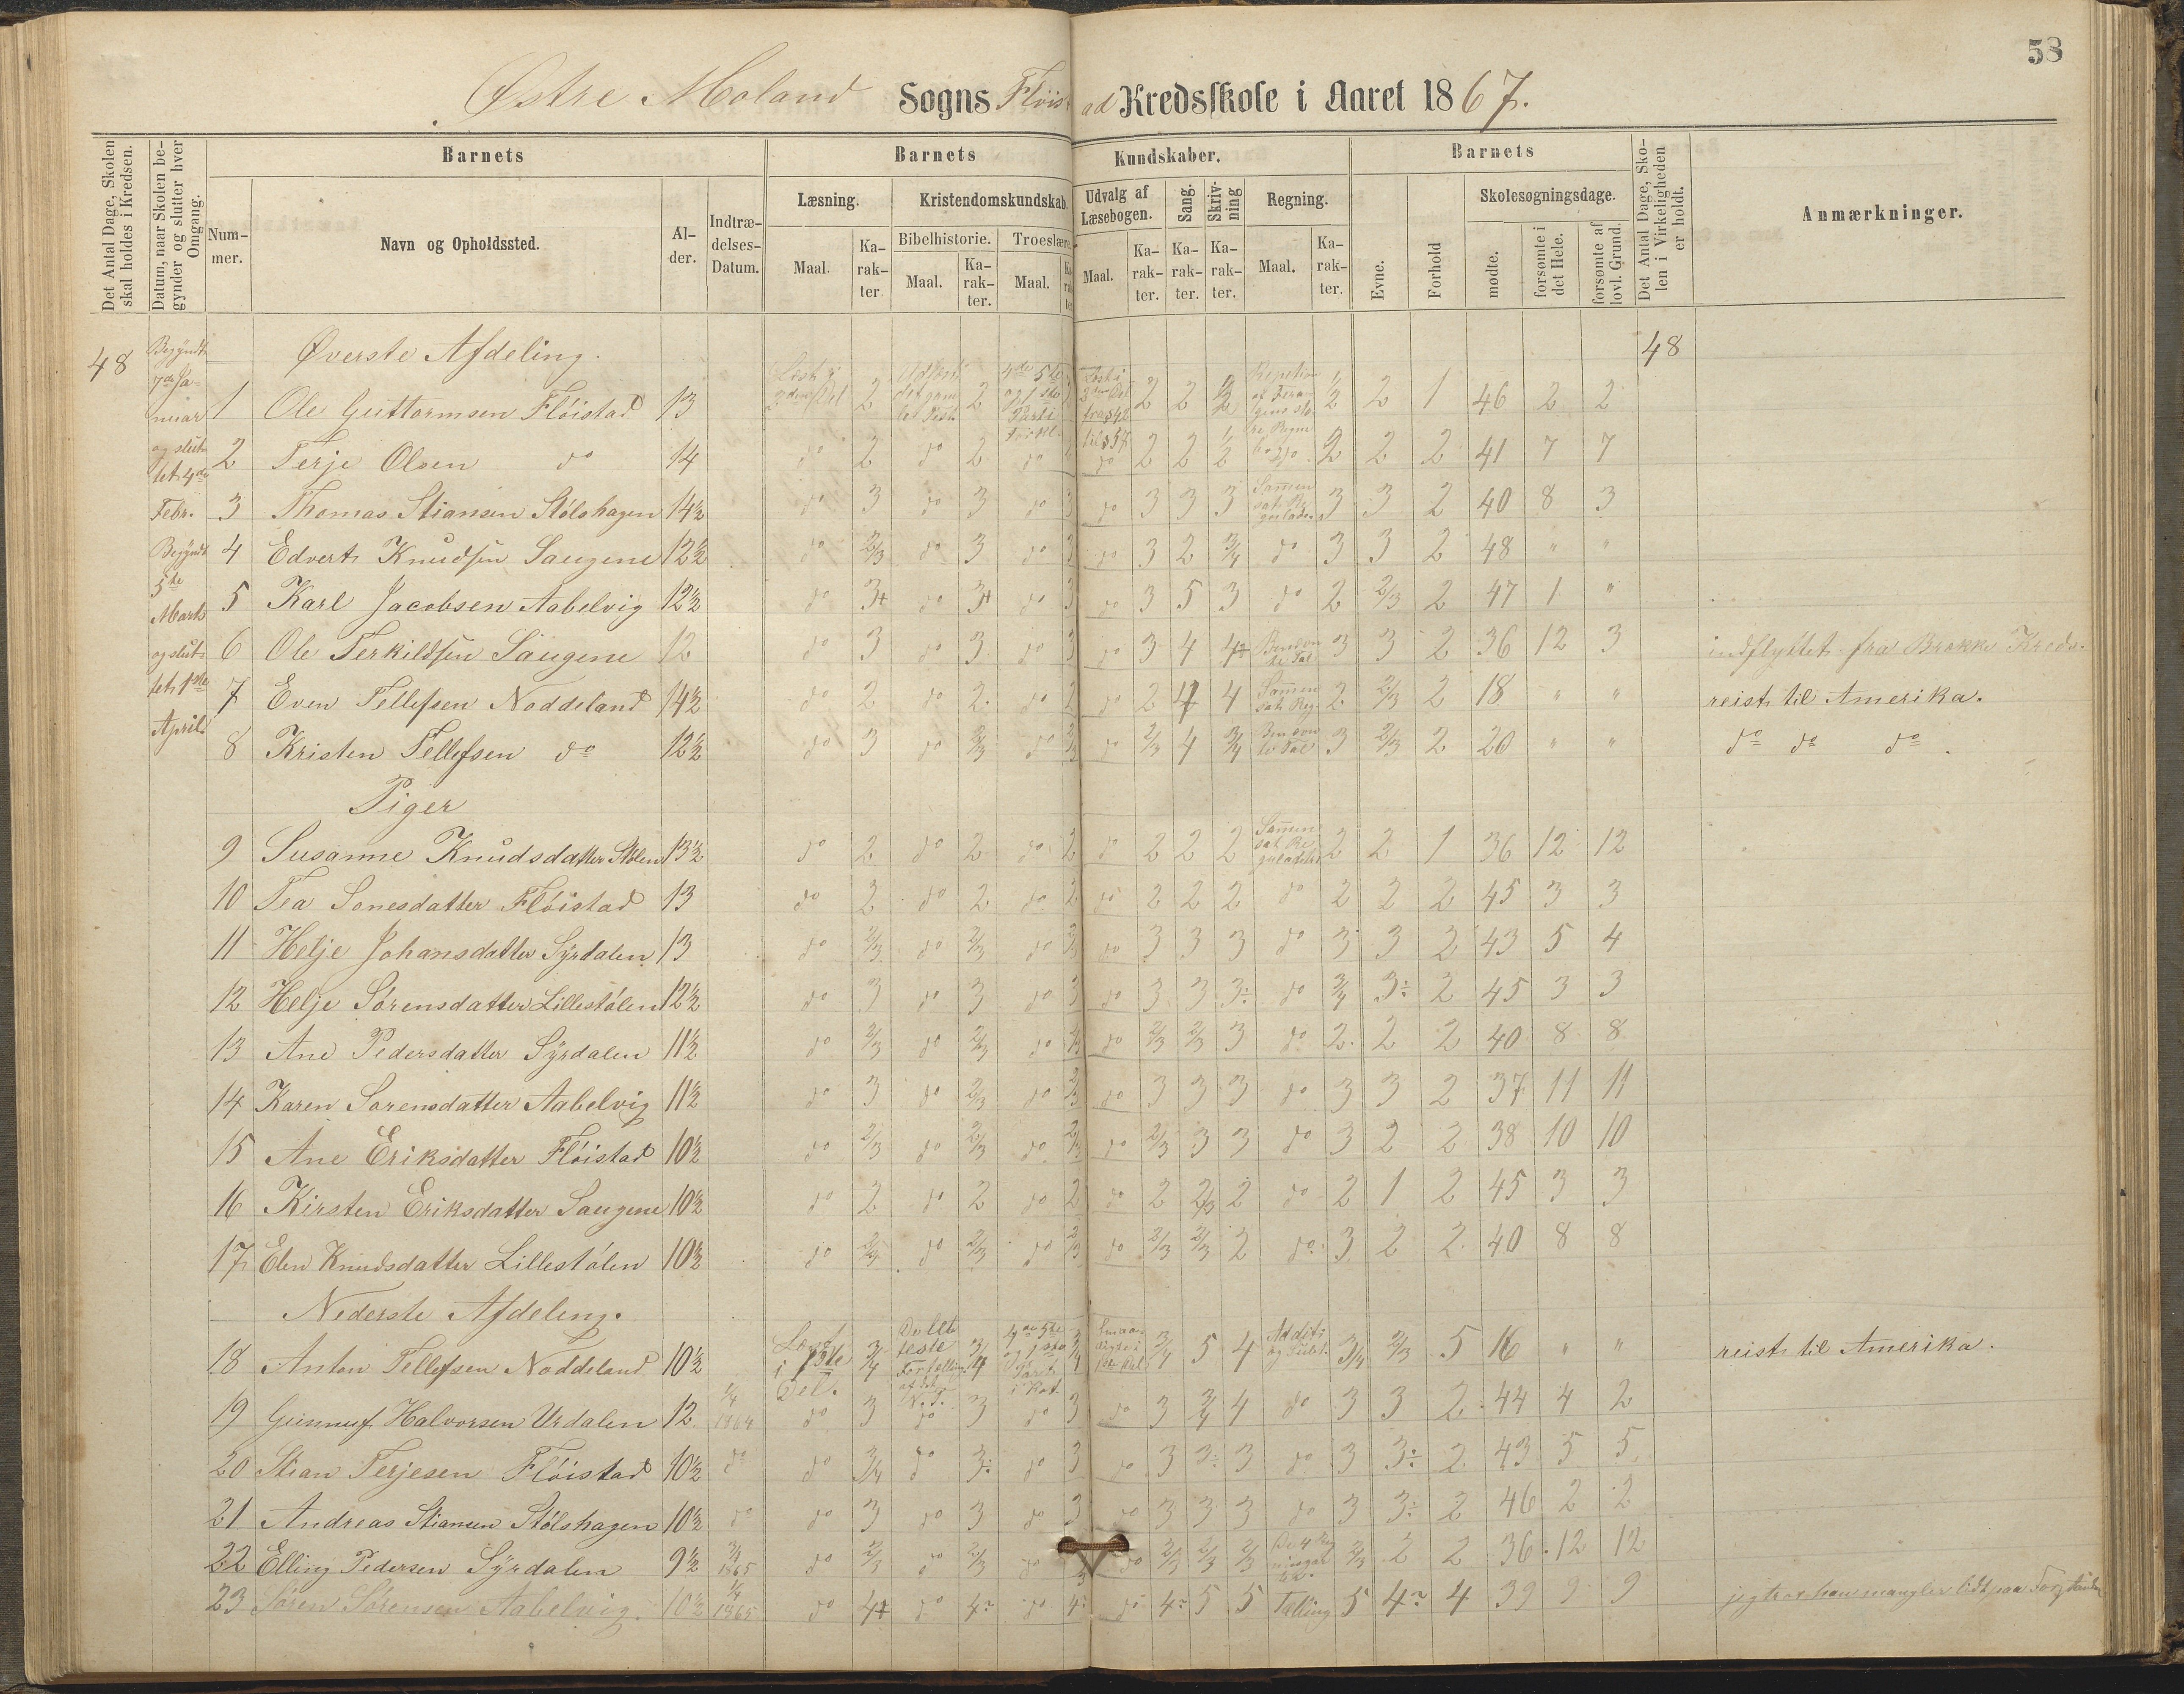 58
Østre Moland Sogns Fløistad Kredsskole i Aaret 1867.
Det Antal Dage, Skolen skal holdes i Kredsen.
Datum, naar Skolen begynder og slutter hver Omgang.
Barnets
Barnets Kundskaber.
Barnets
Det Antal Dage, Skolen i Virkeligheden er holdt.
Anmærkninger.
Nummer.
Navn og Opholdssted.
Alder.
Indtrædelses-Datum.
Læsning.
Kristendomskundskab.
Udvalg af Læsebogen.
Sang.
Skrivning
Regning.
Evne.
Forhold
Skolesøgningsdage.
Bibelhistorie.
Troeslære.
Maal.
Karakter.
Maal.
Karakter.
Maal.
Karakter
Maal.
Karakter.
Karakter.
Karakter.
Maal.
Karakter.
mødte.
forsømte i det Hele.
forsømte af lovl. Grund.
48 Begyndt 7de Januar og sluttet 4de Febr. Begyndt 5te Marts og sluttet 1ste April.
Øverste Afdeling. 48
1 Ole Guttormsen Fløistad 13 2 2 2 2 1/2 1/2 2 1 46 2 2
2 Terje Olsen do 14 do 2 do 2 do do 2 2 1/2 2 2 2 41 7 7
3 Thomas Stiansen Stølshagen 14½ do 3 do 3 do 3 do 3 3 3 3 3 2 40 8 3
4 Edvert Knudsen Saugene 12½ do 2/3 do 3 do 3 do 3 2 3/4 do 3 3 2 48 " "
5 Karl Jacobsen Aabelvig 12½ do 3+ do 3+ do 3 do 3 5 3 do 2 2/3 2 47 1 "
6 Ole Terkildsen Saugene 12 do 3 do 3 do 3 do 3 4 3 3 2 36 12 3 indflyttet fra Brække Kreds.
7 Even Tellefsen Noddeland 14½ do 2 do 2 do 2 do 2 4 4 2 2/3 2 18 " " reist til Amerika.
8 Kristen Tellefsen do 12½ do 3 do 2/3 do 2/3 do 2/3 4 3/4 3 2/3 2 20 " " do do do.
Piger
9 Susanne Knudsdatter Stølen 13½ do 2 do 2 do 2 do 2 2 2 2 2 1 36 12 12
10 Tea Sonesdatter Fløistad 13 do 2 do 2 do 2 do 2 2 2 do 2 2 2 45 3 3
11 Helje Johansdatter Syrdalen 13 do 2/3 do 2/3 do do 3 3 3 do 3 3 2 43 5 4
12 Helje Sørensdatter Lillestølen 12½ do 3 do 3 do 3 do 3 3 3÷ do 3/4 3÷ 2 45 3 3
13 Ane Pedersdatter Syrdalen 11½ do 2/3 do 2/3 do do 2/3 2/3 3 do 2 2 2 40 8 8
14 Karen Sørensdatter Aabelvig 11½ do 3 do 2/3 do 2/3 do 3 3 3 do 3 3 2 37 11 11
15 Ane Eriksdatter Fløistad 10½ do 2/3 do 2/3 do 2/3 do 2/3 3 3 do 3 2 2 38 10 10
16 Kirsten Eriksdatter Saugene 10½ do 2 do 2 do 2 do 2 2/3 2 do 2 1 2 45 3 3
17 Elen Knudsdatter Lillestølen 10½ do do 2/3 do 2/3 do 2/3 2/3 2 do 3 2 2 40 8 8
Nederste Afdeling.
18 Anton Tellefsen Noddeland 10½ Læst i 1ste Del. 3/4 3/4 3/4 5 4 3/4 2/3 5 16 " " reist til Amerika.
19 Gunnuf Halvorsen Urdalen 12 1/4 1864 do 3 do 3 do 3 do 3 3/4 4 do 3 3 2 44 4 2
20 Stian Terjesen Fløistad 10½ do do 3/4 do 3÷ do 3 do 3 3÷ 3 do 3 3÷ 2 43 5 5
21 Andreas Stiansen Stølshagen 10½ do do 3 do 3 do 3 do 3 3 3 do 3 3÷ 2 46 2 2
22 Elling Pedersen Syrdalen 9½ 1865 do 2/3 do 2/3 do do 2/3 2/3 2/3 2/3 2 2 36 12 12
23 Søren Sørensen Aabelvig. 10½ 1/4 1865 do do do do 5 5 Tælling 5 4 39 9 9 jeg tror han mangler lidt paa Forstanden